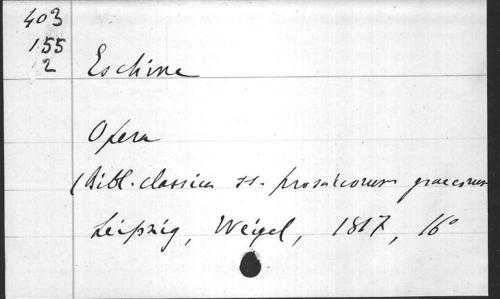 403
155
2
Eschine
Opera
(Bibl. classica ss. prosaicorum graecorum
Leipzig, Weigel, 1817, 16°